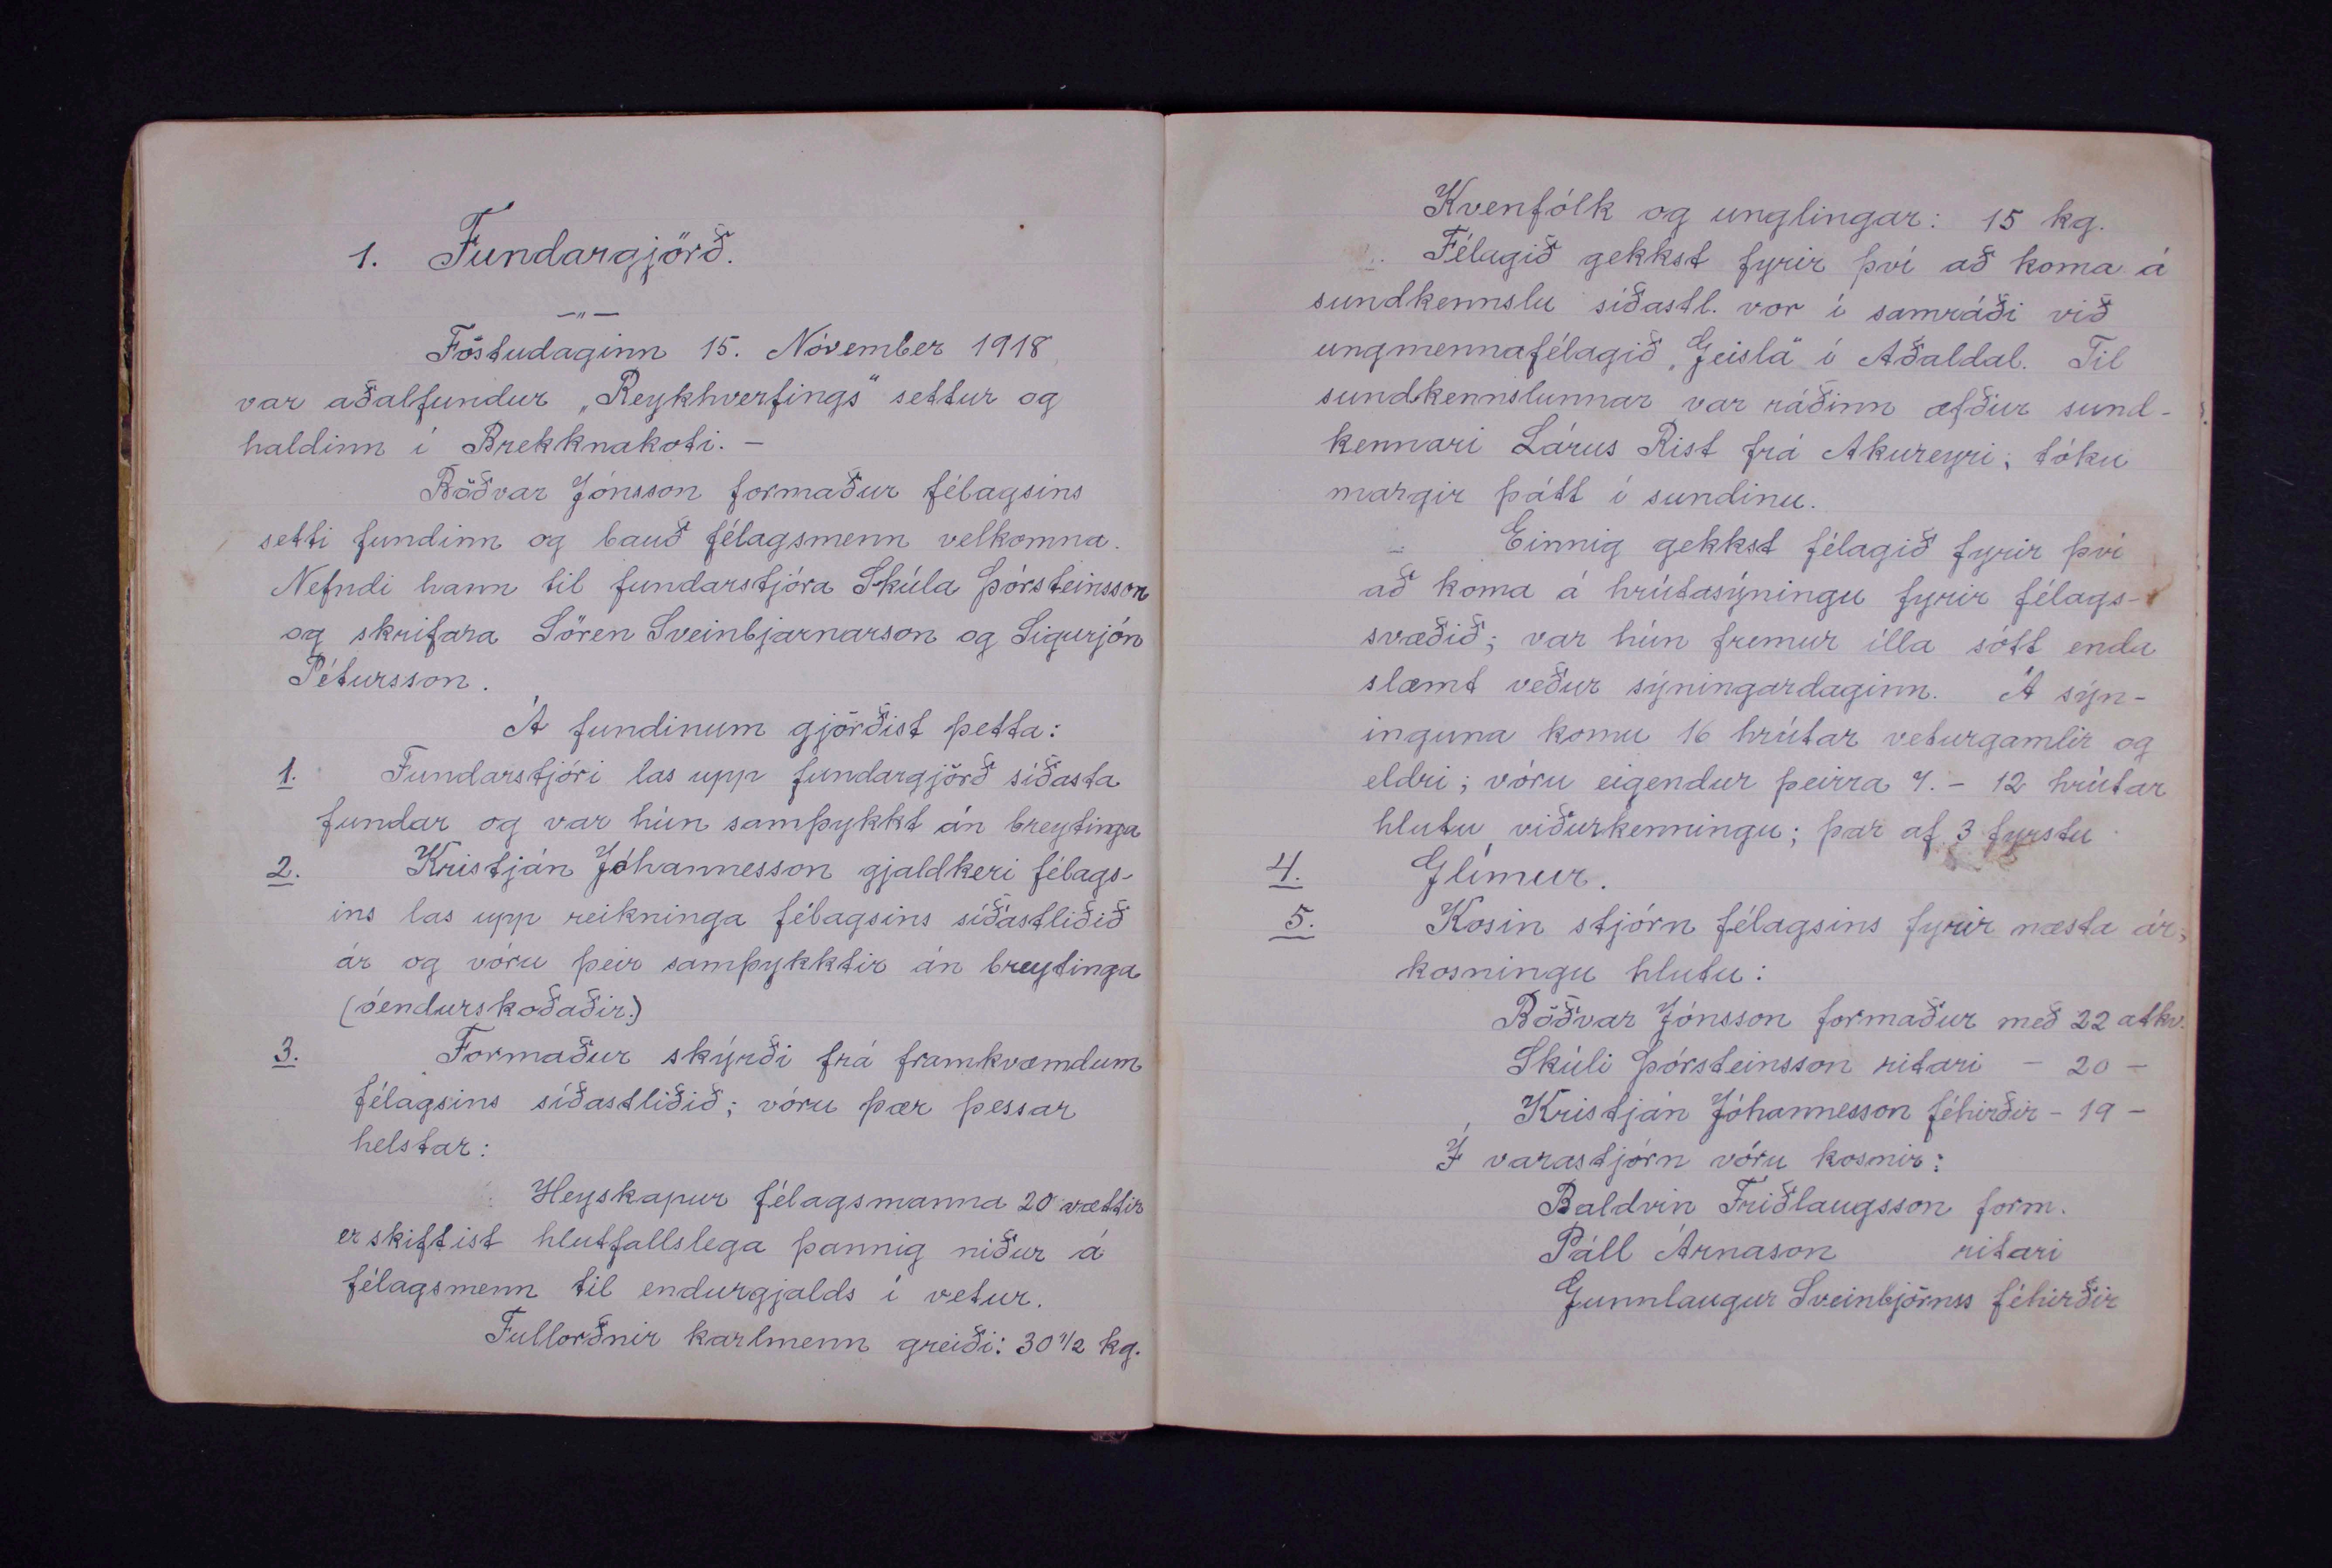 1. Fundargjörð.
—"—
Föstudaginn 15. Nóvember 1918
var aðalfundur „Reykhverfings" settur og
haldinn í Brekknakoti. —
Böðvar Jónsson formaður félagsins
setti fundinn og bauð félagsmenn velkomna.
Nefndi hann til fundarstjóra Skúla Þórsteinsson
og skrifara Sören Sveinbjarnarson og Sigurjón
Pétursson.
Á fundinum gjörðist þetta:
1. Fundarstjóri las upp fundargjörð síðasta
fundar og var hún samþykkt án breytinga
2. Kristján Jóhannesson gjaldkeri félags-
ins las upp reikninga félagsins síðastliðið
ár og vóru þeir samþykktir án breytinga
(óendurskoðaðir.)
3. Formaður skýrði frá framkvæmdum
félagsins síðastliðið; vóru þær þessar
helstar:
Heyskapur félagsmanna 20 vættir
er skiftist hlutfallslega þannig niður á
félagsmenn til endurgjalds í vetur.
Fullorðnir karlmenn greiði: 30 1/2 kg.
Kvenfólk og unglingar: 15 kg.
Félagið gekkst fyrir því að koma á
sundkennslu síðastl. vor í samráði við
ungmennafélagið „Geisla" í Aðaldal. Til
sundkennslunnar var ráðinn æfður sund-
kennari Lárus Rist frá Akureyri; tóku
margir þátt í sundinu.
Einnig gekkst félagið fyrir því
að koma á hrútasýningu fyrir félags-
svæðið; var hún fremur illa sótt enda
slæmt veður sýningardaginn. Á sýn-
inguna komu 16 hrútar veturgamlir og
eldri; vóru eigendur þeirra 7. - 12 hrútar
hlutu viðurkenningu; þar af 3 fyrstu
4. Glímur.
5. Kosin stjórn félagsins fyrir næsta ár;
kosningu hlutu:
Böðvar Jónsson formaður með 22 atkv.
Skúli Þórsteinsson ritari - 20 -
Kristján Jóhannesson féhirðir - 19 -
Í varastjórn vóru kosnir:
Baldvin Friðlaugsson form.
Páll Árnason ritari
Gunnlaugur Sveinbjörnss féhirðir